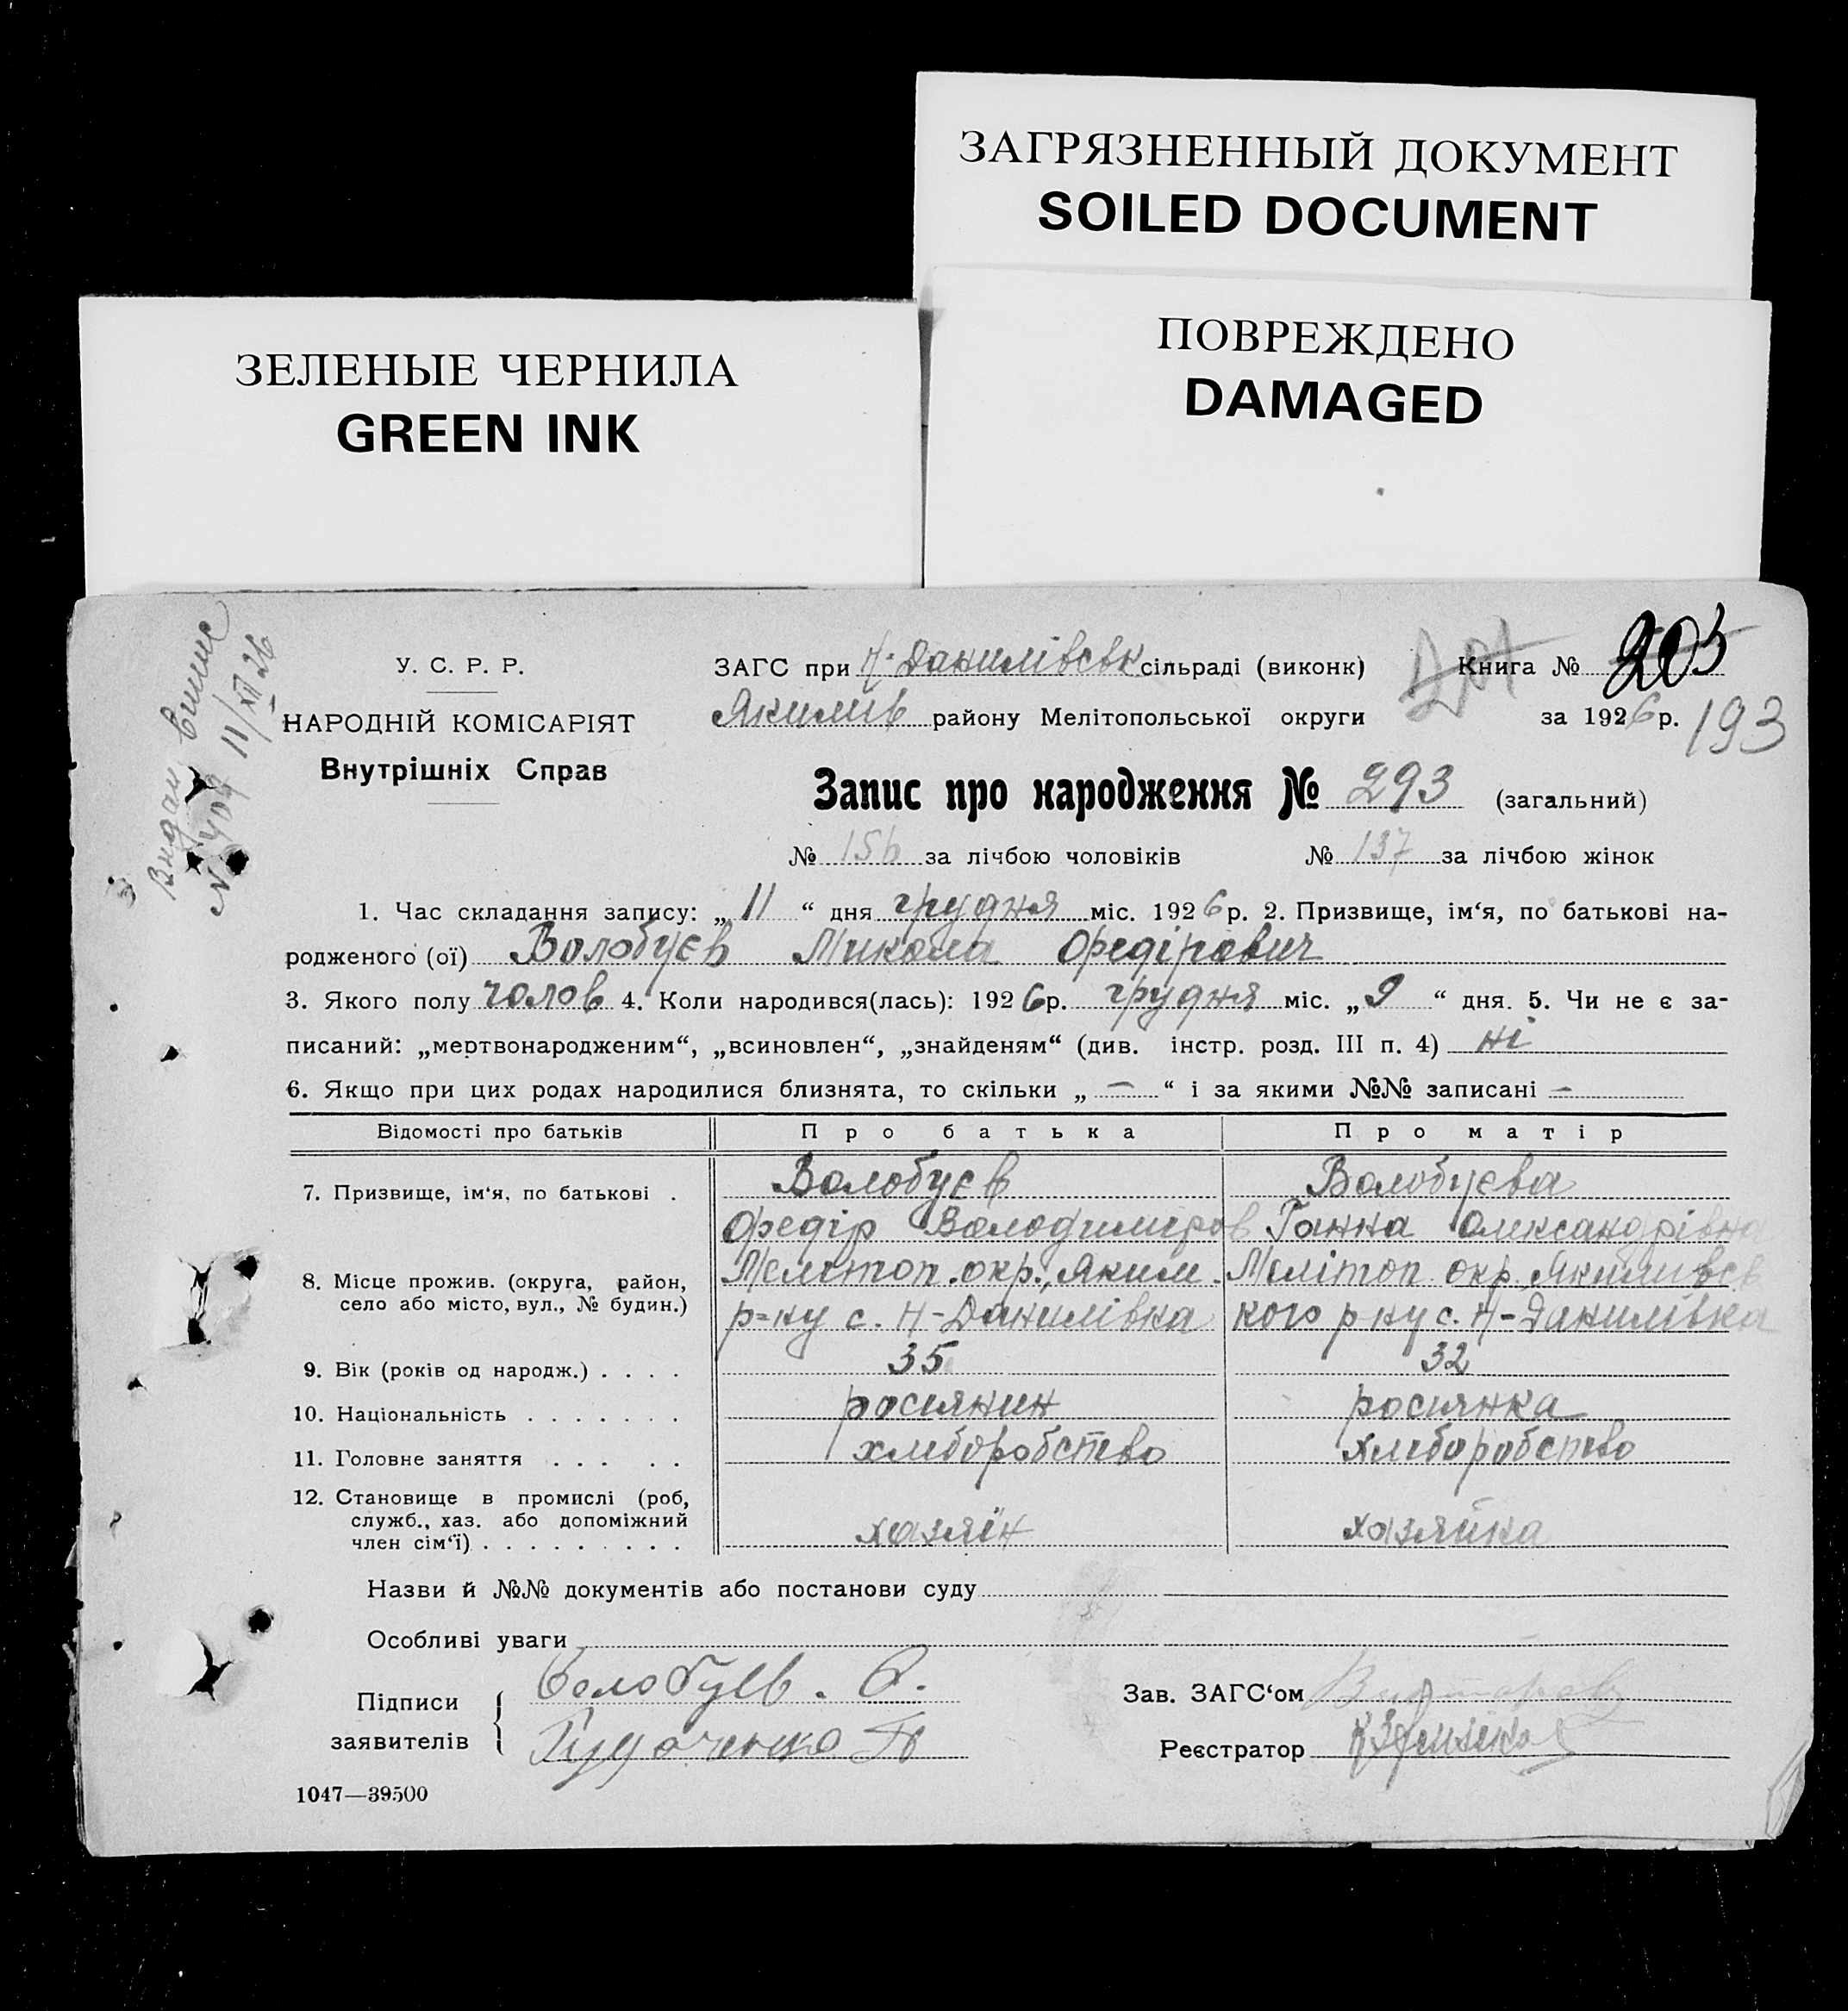 ЗАГРЯЗНЕННЫЙ ДОКУМЕНТ
SOILED DOCUMENT
ЗЕЛЕНЫЕ ЧЕРНИЛА
GREEN INK
ПОВРЕЖДЕНО
DAMAGED
Видан випис
№ 409 11/XII 26
У. С. Р. Р.
НАРОДНІЙ КОМІСАРІЯТ
Внутрішніх Справ
ЗАГС при Н-Данилівськ сільраді (виконк)
Якимів району Мелітопольської округи
Книга № 205
за 1926 р. 193
Запис про народження № 293 (загальний)
№ 156 за лічбою чоловіків № 137 за лічбою жінок
1. Час складання запису: „ 11 “ дня грудня міс. 1926 р. 2. Призвище, ім‘я, по батькові на-
родженого (ої) Волобуєв Микола Федірович
3. Якого полу чолов 4. Коли народився(лась): 1926 р. грудня міс. „ 9 “ дня. 5. Чи не є за-
писаний: „мертвонародженим“, „всиновлен“, „знайденям“ (див. інстр. розд. III п. 4) ні
6. Якщо при цих родах народилися близнята, то скільки „ — “ і за якими №№ записані —
Відомості про батьків Про батька Про матір
7. Призвище, ім‘я, по батькові . Волобуєв Волобуєва
Федір Володимиров Ганна Олександрівна
8. Місце прожив. (округа, район, село або місто, вул., № будин.) Мелітоп. окр., Яким. Мелітоп. окр. Якимівсь
р-ну с. Н-Данилівка кого р-ну с. Н-Данилівка
9. Вік (років од народж.) . . . . 35 32
10. Національність . . . . . . . росиянин росиянка
11. Головне заняття . . . . . хлиборобство хлиборобство
12. Становище в промислі (роб, служб., хаз. або допоміжний член сім‘ї) . . . . . . . . . хазяїн хазяйка
Назви й №№ документів або постанови суду
Особливі уваги
Підписи
заявителів
Волобуев. Ф.
Зав. ЗАГС‘ом
Реєстратор
1047—39500